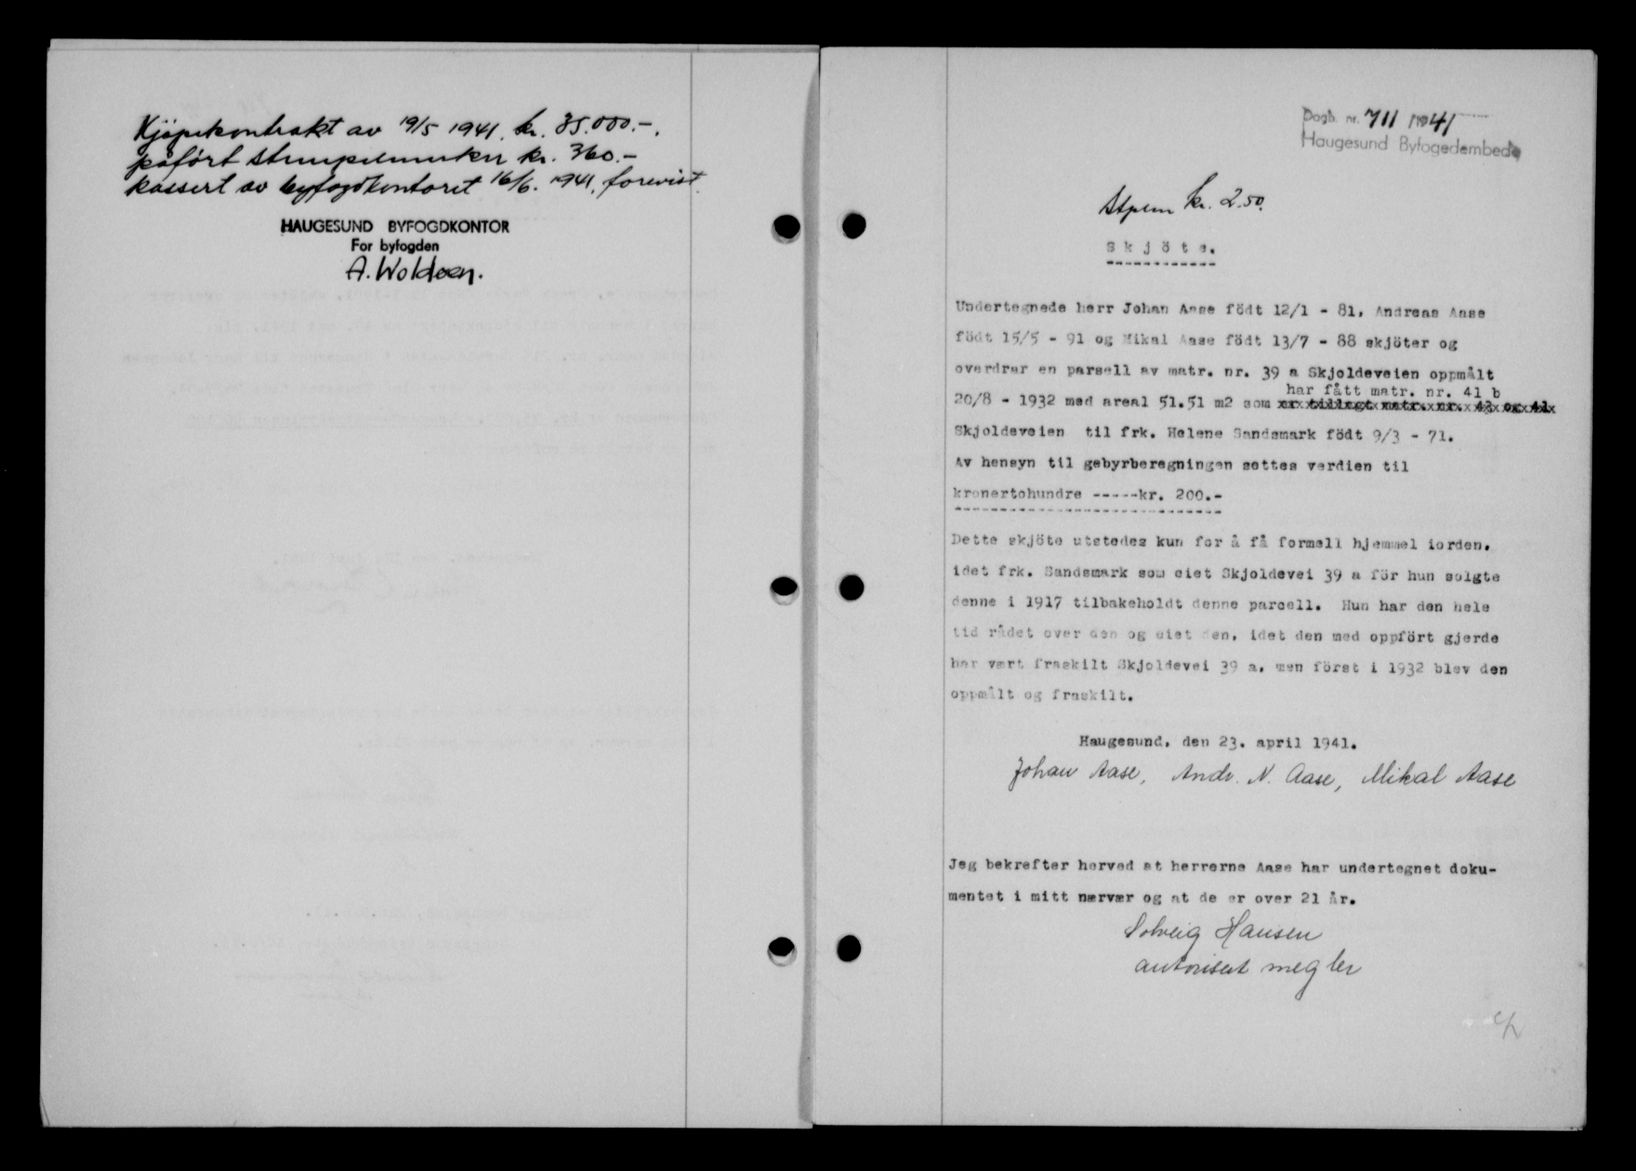 Kjöpekontrakt av 19/5 1941. kr. 35.000.-.
påført stempelmerker kr. 360.-
kassert av byfogdkontoret 16/6. 1941, forevist.
HAUGESUND BYFOGDKONTOR
For byfogden
A. Woldsen.
Dagb. nr. 711 1941
Haugesund Byfogedembede
Stplm kr. 2.50.
Skjöte.
Undertegnede herr Johan Aase födt 12/1 - 81, Andreas Aase
födt 15/5 - 91 og Mikal Aase födt 13/7 - 88 skjöter og
overdrar en parsell av matr. nr. 39 a Skjoldeveien oppmålt
har fått matr. nr. 41 b
20/8 - 1932 med areal 51.51 m2 som er tillagt matr. nr. 43 og 41
Skjoldeveien til frk. Helene Sandsmark födt 9/3 - 71.
Av hensyn til gebyrberegningen settes verdien til
kronertohundre -----kr. 200.-
Dette skjöte utstedes kun for å få formell hjemmel iorden,
idet frk. Sandsmark som eiet Skjoldevei 39 a för hun solgte
denne i 1917 tilbakeholdt denne parcell. Hun har den hele
tid rådet over den og eiet den, idet den med oppfört gjerde
har vært fraskilt Skjoldevei 39 a, men först i 1932 blev den
oppmålt og fraskilt.
Haugesund, den 23. april 1941.
Johan Aase, Andr. N. Aase, Mikal Aase
Jeg bekrefter herved at herrerne Aase har undertegnet doku-
mentet i mitt nærvær og at de er over 21 år.
Solveig Hansen
autorisert megler